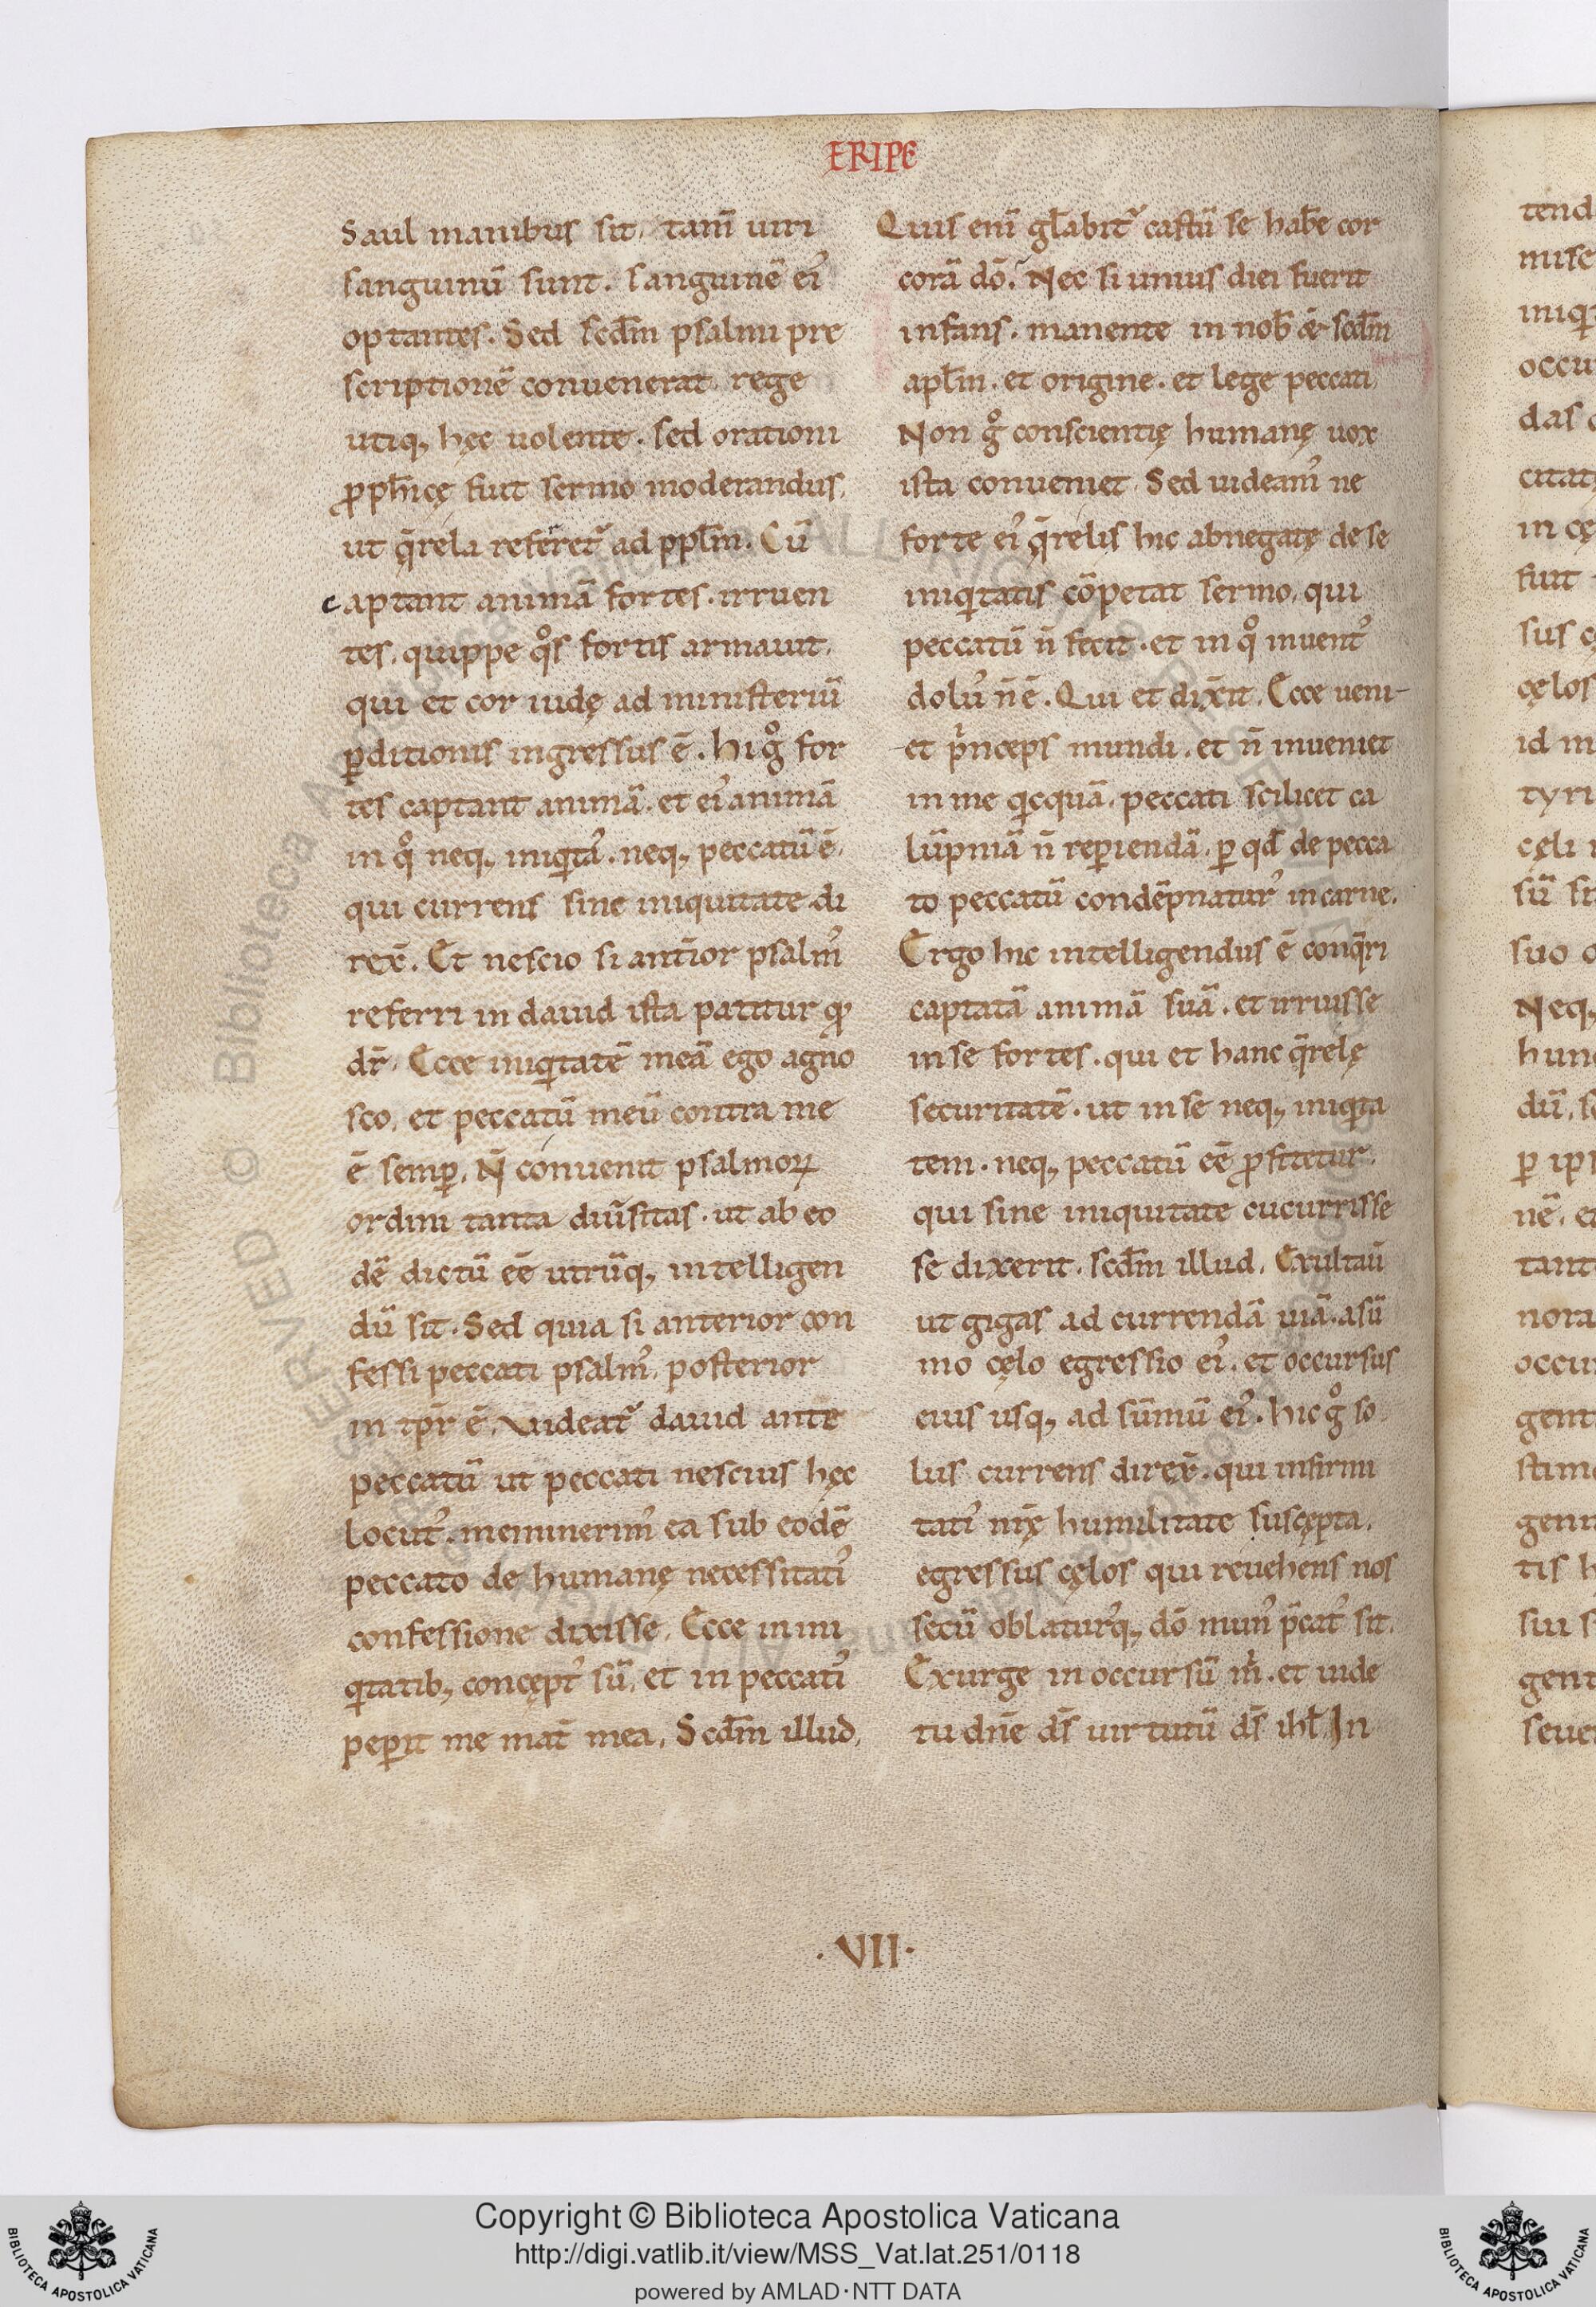 ERIPE
Saul manibus sit, tam̄ uiri
sanguinū sunt. sanguinē ei᾽
optantes. Sed scd̄m psalmi pre
scriptionē conuenerat rege
utiq; hęc uolente. sed orationi
ꝓph̄icę fuit sermo moderandus,
ut q̄rela referret᾽ ad ppl̄m. Cū
captant animā fortes. irruen
tes, quippe qͦs fortis armauit,
qui et cor iudę ad ministeriū
ꝑditionis ingressus ē. hi gͦ for
tes captant animā. et ei᾽ animā
in qͦ neq; iniqͥta᾽. neq; peccatū ē.
qui currens sine iniquitate di
rex̄. Et nescio si ant̄ior psalm᾽
referri in dauid ista patitur qͦ
dr̄. Ecce iniqͥtatē meā ego agno
sco, et peccatū meū contra me
ē semꝑ. N̄ conuenit psalmoꝝ
ordini tanta diu̅sitas. ut ab eo
dē dictū eē utrūq; intelligen
dū sit. Sed quia si anterior con
fessi peccati psalm᾽, posterior
in tp̄r ē. Videat᾽ dauid ante
peccatū ut peccati nescius hęc
locut᾽. meminerim᾽ ea sub eodē
peccato de humanę necessitati᾽
confessione dixisse. Ecce in ini
qͥtatib; concępt᾽ sū, et in peccati᾽
peꝑit me mat̄ mea. Scd̄m illud,
Quis enī gl̄abit᾽ castū se hab̄e cor
corā dō. Nec si unius diei fuerit
infans. manente in nob̄ & scd̄m
apl̄m. et origine. et lege peccati.
Non gͦ conscientię humanę uox
ista conueniet. Sed uideam᾽ ne
forte ei᾽ q̄relis hic abnegatę de se
iniqͥtatis cōpetat sermo, qui
peccatū n̄ fecit. et in qͦ inuent᾽
dolu᾽ n̄ ē. Qui et dixit. Ecce ueni-
et pͥnceps mundi. et n̄ inueniet
in me qͥcquā. peccati scilicet ca
lūpniā n̄ reꝑiendā. ꝑ qd̄ de pecca
to peccatū condēpnatur᾽ in carne.
Ergo hic intelligendus ē conq̄ri
captatā animā suā. et irruisse
in se fortes. qui et hanc q̄relę
securitatē. ut in se neq; iniqͥta
tem. neq; peccatū eē ꝓfitetur.
qui sine iniquitate cucurrisse
se dixerit. scd̄m illud. Exultau̅
ut gigas ad currendā uiā. a sū
mo cęlo egressio ei᾽. et occursus
eius usq; ad sūmū ei᾽. hic gͦ so
lus currens direx̄. qui infirmi
tati᾽ nr̄ę humilitate suscępta,
egressus cęlos qui reuehens nos
secū oblatur᾽q; dō mun᾽ p̄cat᾽ sit.
Exurge in occursū m̄. et uide
tu dn̄e ds̄ uirtutū ds̄ ihl̄. In
·VII·
tend
misc
iniqͥ
occu
das
citat
in cę
fuit
sus
cęlos
id in
tyri
cęli
sū
suo
Neq;
hunc
dū,
ꝑ ip
nē, et
tant
nora
occu
gent
stim
geni
tis h
sui s
gent
seue
Copyright © Biblioteca Apostolica Vaticana
http://digi.vatlib.it/view/MSS_Vat.lat.251/0118
powered by AMLAD·NTT DATA
BIBLIOTECA APOSTOLICA VATICANA
BIBLIOTECA APOSTOLICA VATICANA